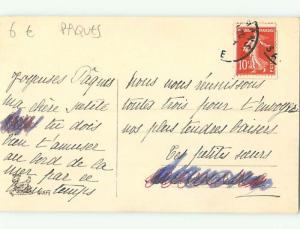 6 € PAQUES
Joyeuses Pâques
ma chère Juliette
tu dois
bien t'amuser
au bord de la
mer par ce
temps
Nous nous réunissons
toutes trois pour t'envoyer
nos plus tendres baisers.
Tes petites sœurs
10